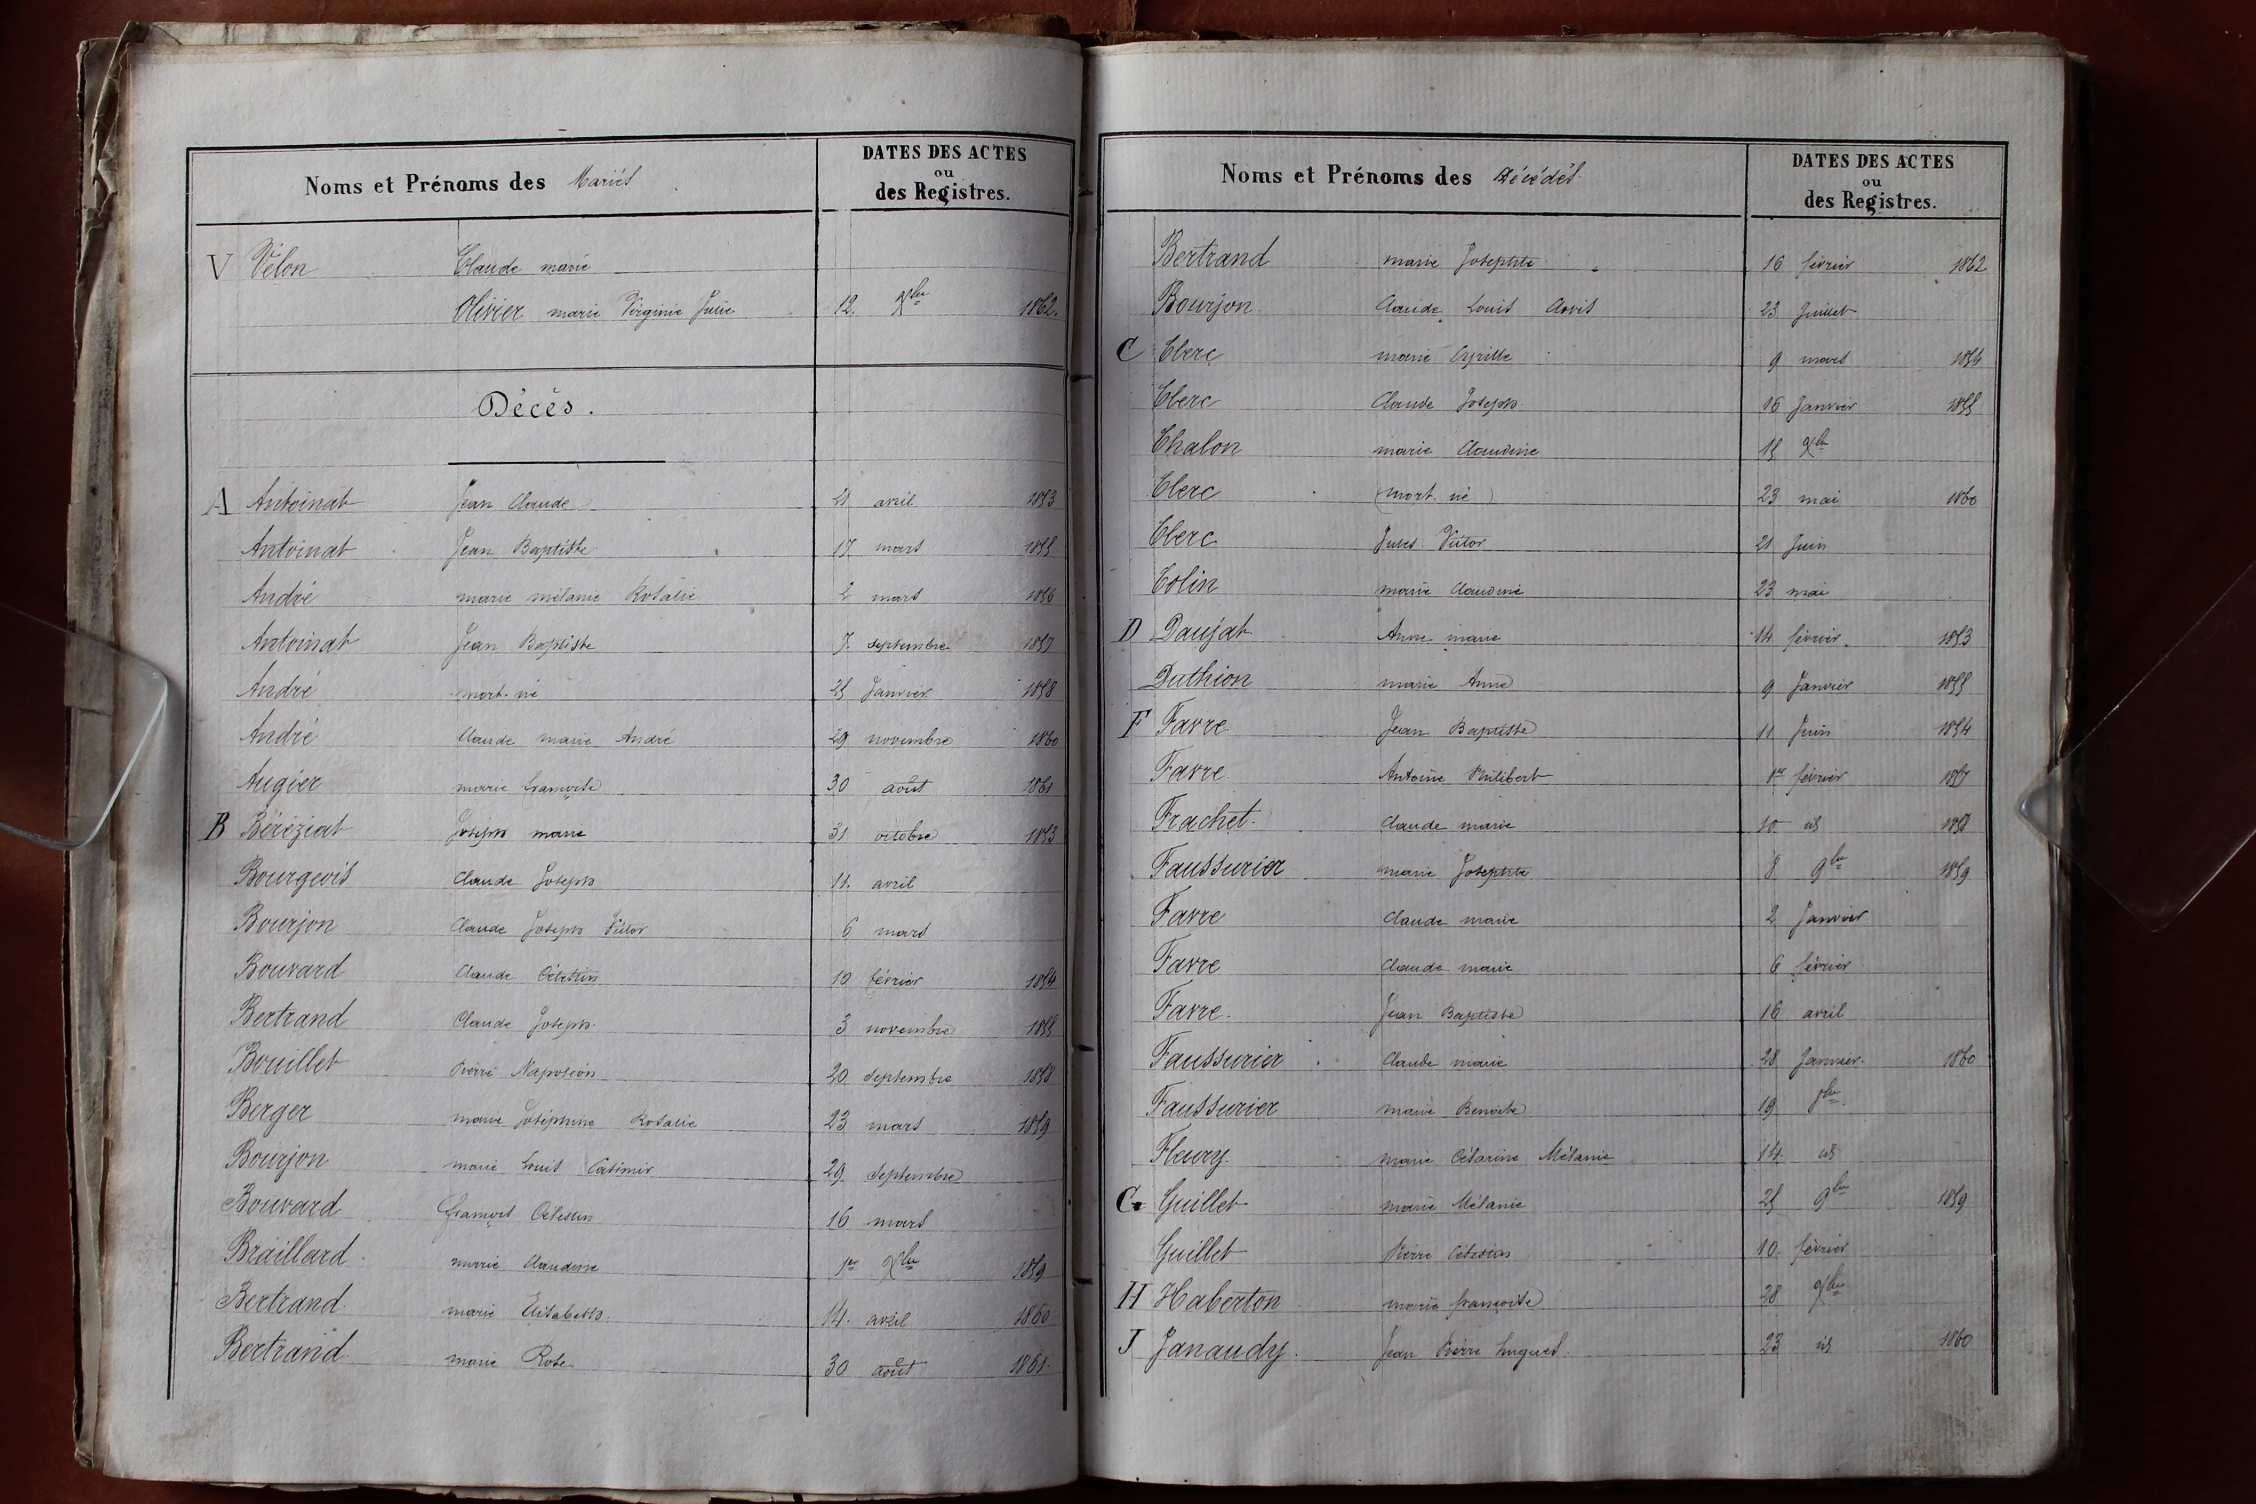 Noms et Prénoms des Mariés
DATES DES ACTES
ou
des Registres.
V Vélon Claude marie
Olivier marie Virginie Julie 12. Xbre 1862.
Décès.
A Antoinat Jean Claude 21 avril 1853
Antoinat Jean Baptiste 17 mars 1855
André marie mélanie Rosalie 2 mars 1856
Antoinat Jean Baptiste 7 septembre 1857
André mort-né 25 Janvier 1858
André Claude marie André 29 novembre 1860
Augier marie françoise 30 août 1861
B Béréziat Joseph marie 31 octobre 1853
Bourgeois Claude Joseph 11. avril
Bourjon Claude Joseph Victor 6 mars
Bouvard Claude Célestin 10 février 1854
Bertrand Claude Joseph 3 novembre 1855
Bouillet Pierre Napoléon 20 septembre 1858
Berger marie Joséphine Rosalie 23 mars 1859
Bourjon marie Louis Casimir 29 septembre
Bouvard françois Célestin 16 mars
Braillard marie Claudine 1er Xbre 1859
Bertrand marie Elisabeth. 14. avril 1860
Bertrand marie Rose 30 août 1861.
Noms et Prénoms des Décédés
DATES DES ACTES
ou
des Registres.
Bertrand marie Josephte 16 février 1862
Bourjon Claude Louis 23 Juillet
C Clerc marie Cyrille 9 mars 1854
Clerc Claude Joseph 16 Janvier 1855
Chalon marie Claudine 15 Xbre
Clerc (mort né) 23 mai 1860
Clerc Jules Victor 21 Juin
Colin marie Claudine 23 mai
D Daujat Anne marie 14 février 1853
Duthion marie Anne 9 Janvier 1855
F Favre Jean Baptiste 11 Juin 1854
Favre Antoine Philibert 1er février 1857
Frachet Claude marie 10 id 1858
Faussurier marie Josephte 8 9bre 1859
Favre Claude marie 2 Janvier
Favre Claude marie 6 février
Favre. Jean Baptiste 16 avril
Faussurier Claude marie 28 Janvier. 1860
Faussurier marie Benoite 19 8bre
Fleury marie Césarine Mélanie 14 id
G Guillet marie Mélanie 25 9bre 1859
Guillet Pierre Célestin 10. février
H Haberton marie françoise 28 Xbre
J Janaudy. Jean Pierre hugues. 23 id 1860